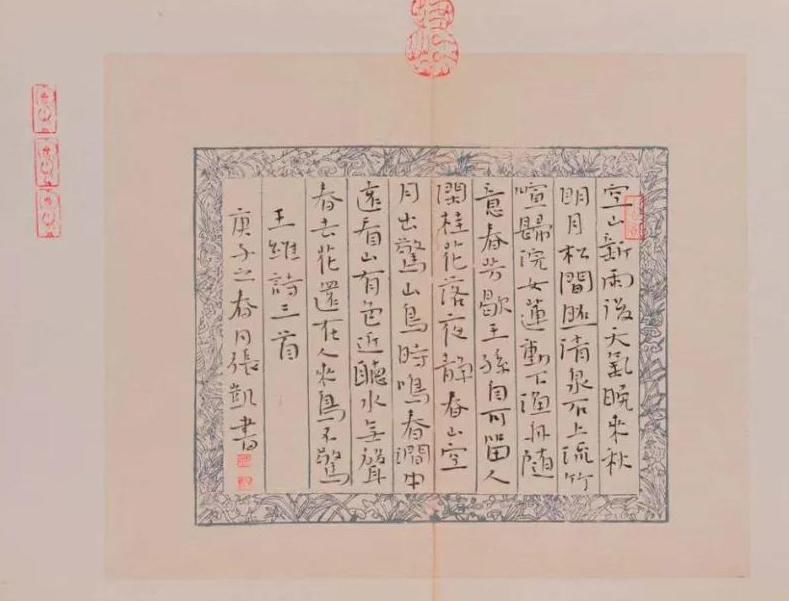 空山新雨後天氣晚來秋
明月松間照清泉石上流竹
喧歸浣女蓮動下漁舟隨
意春芳歇王孫自可留人
閑桂花落夜靜春山空
月出驚山鳥時鳴春澗中
遠看山有色近聽水無聲
春去花還在人來鳥不驚
王維詩三首
庚子之春月張凱書